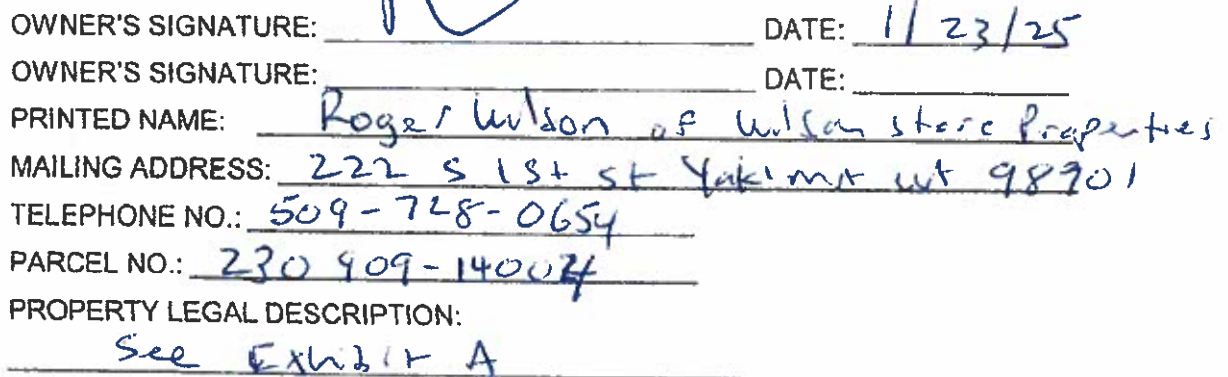 OWNER'S SIGNATURE: DATE: 1/23/25
OWNER'S SIGNATURE: DATE:
PRINTED NAME: Roger Wilson of Wilson Properties
MAILING ADDRESS: 222 S 1st st Yakima WA 98901
TELEPHONE NO.: 509-728-0654
PARCEL NO.:
PROPERTY LEGAL DESCRIPTION:
See Exhibit A